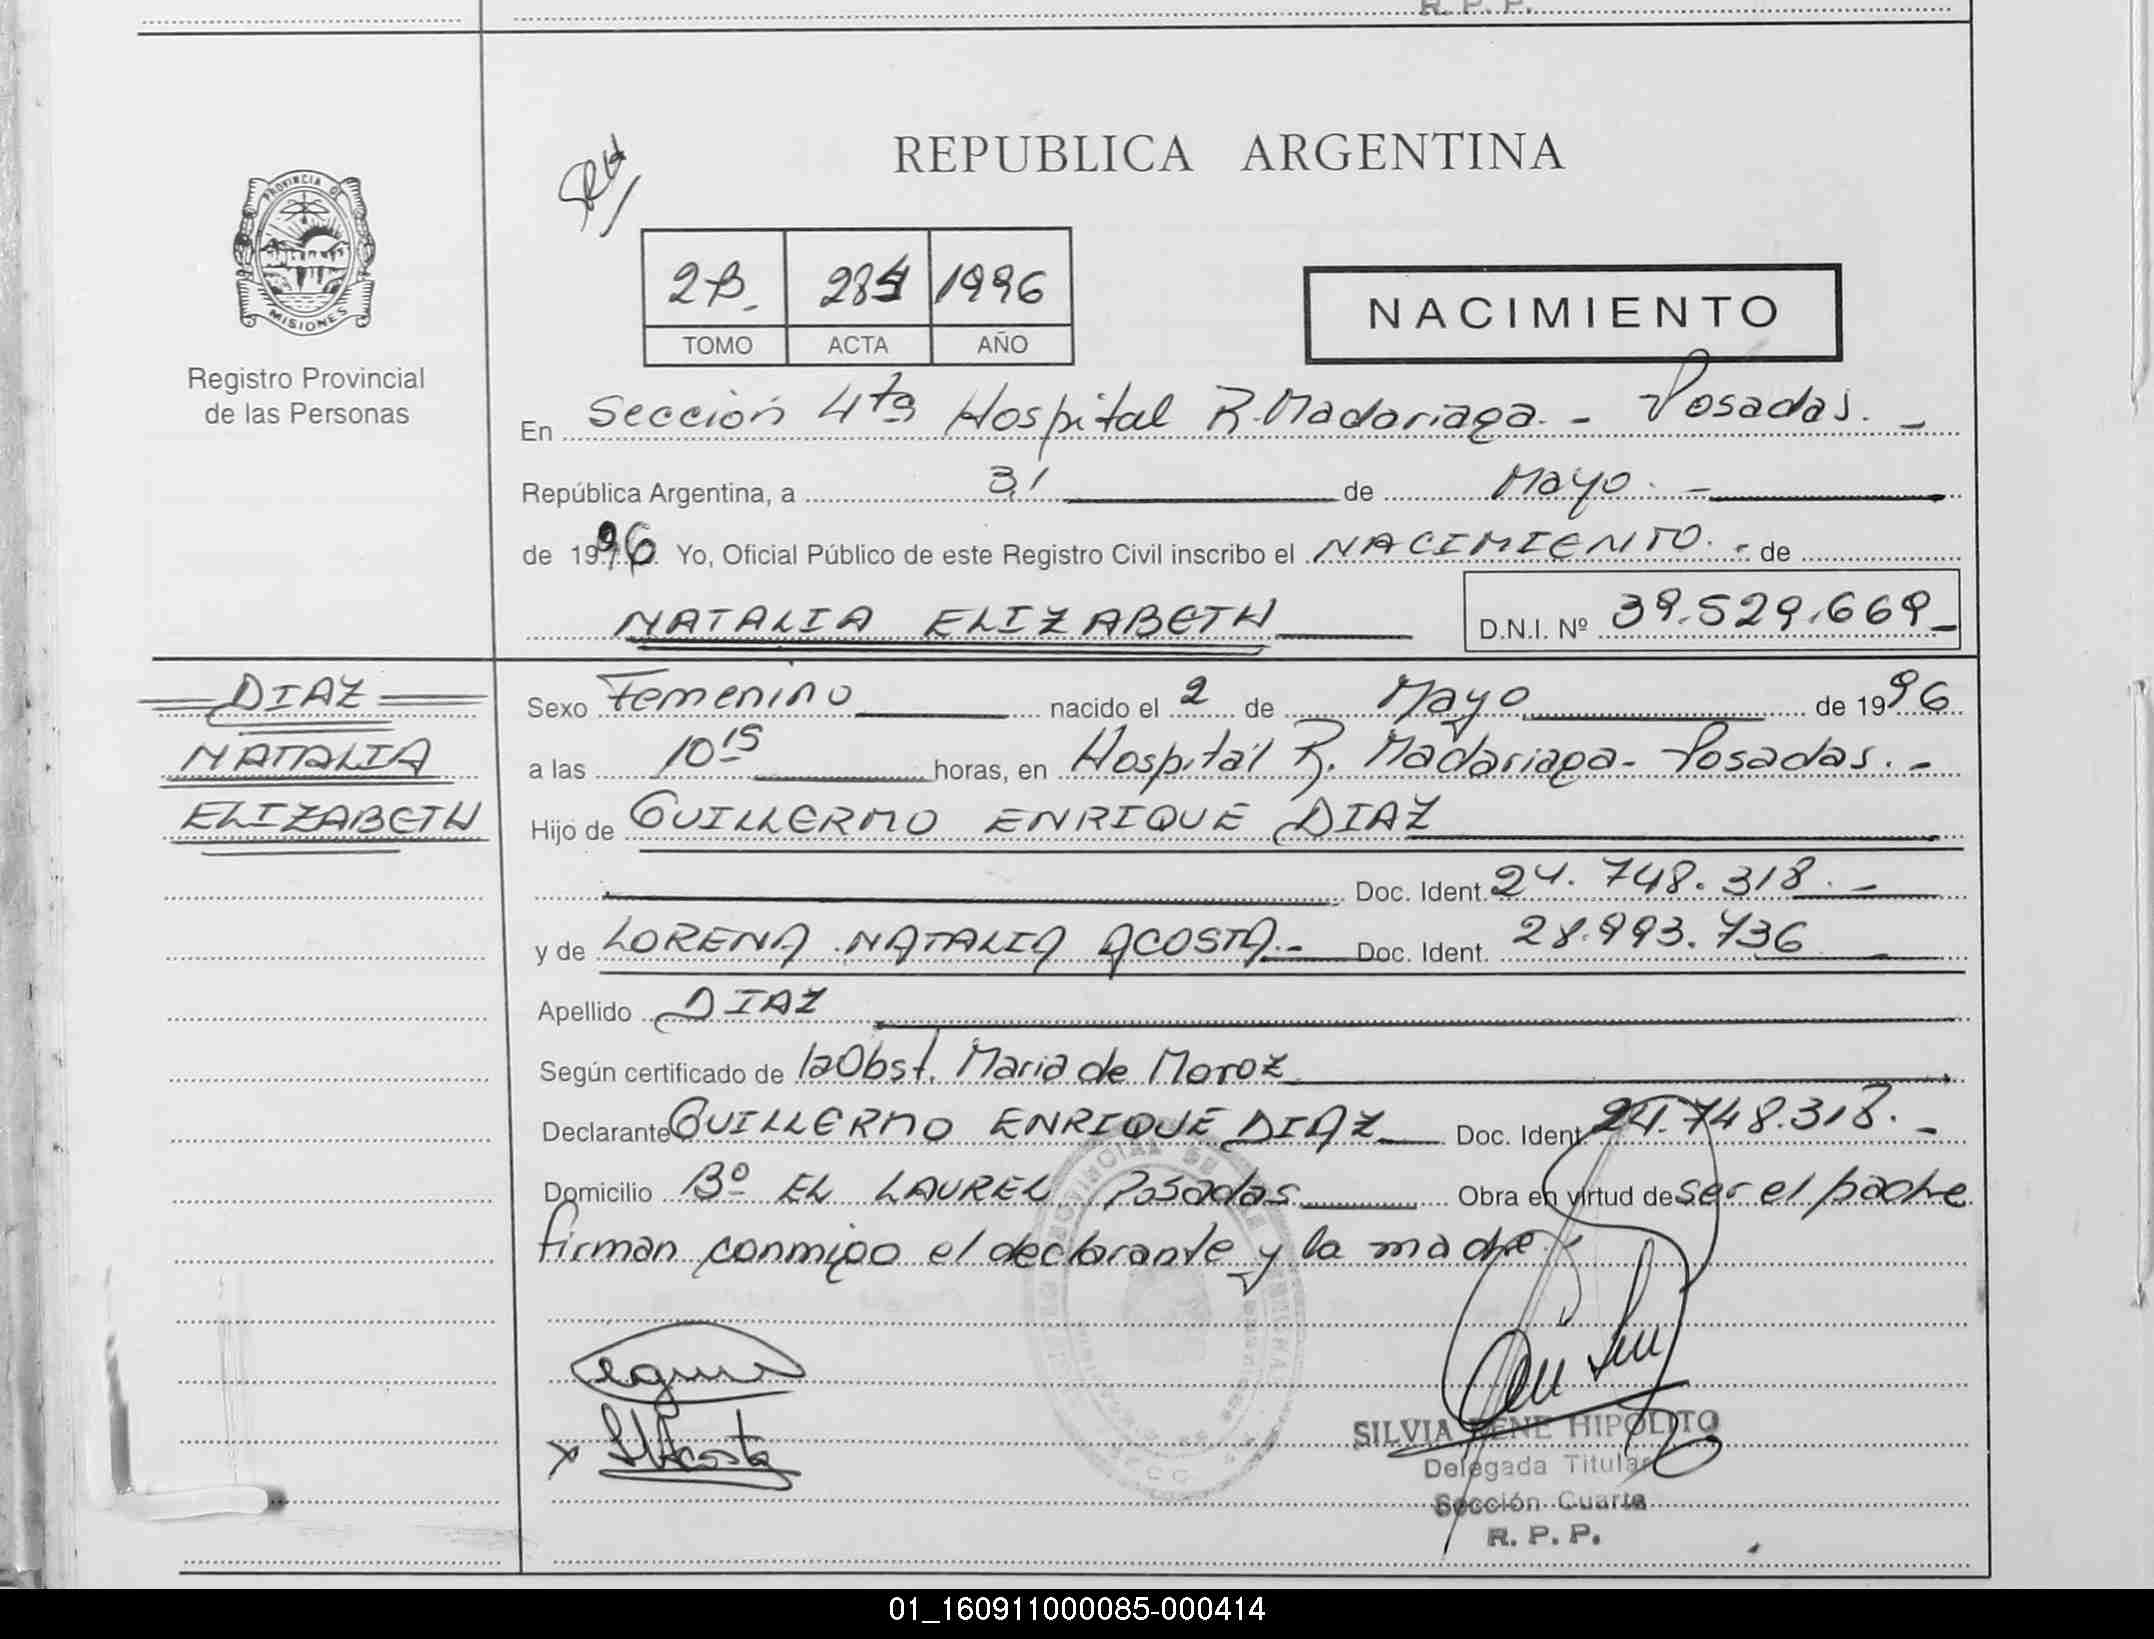 R. P. P.
REPUBLICA ARGENTINA
PROVINCIA DE
MISIONES
Registro Provincial
de las Personas
2B. 284 1996
TOMO ACTA AÑO
NACIMIENTO
En Sección 4ta Hospital R. Madariaga. - Posadas. -
República Argentina, a 31 de Mayo. -
de 1996 Yo, Oficial Público de este Registro Civil inscribo el NACIMIENTO. - de
NATALIA ELIZABETH D.N.I. Nº 39.529.669 -
DIAZ
NATALIA
ELIZABETH
Sexo Femenino nacido el 2 de Mayo de 1996
a las 10 15 horas, en Hospital R. Madariaga - Posadas. -
Hijo de GUILLERMO ENRIQUE DIAZ
Doc. Ident. 24.748.318. -
y de LORENA NATALIA ACOSTA - Doc. Ident. 28.993.736
Apellido DIAZ
Según certificado de la Obst. Maria de Moroz
Declarante GUILLERMO ENRIQUE DIAZ Doc. Ident. 24.748.318. -
Domicilio Bº EL LAUREL Posadas Obra en virtud de ser el padre
firman conmigo el declarante y la madre.
x Acosta
SILVIA RENE HIPOLITO
Delegada Titular
Sección Cuarta
R. P. P.
01_160911000085-000414